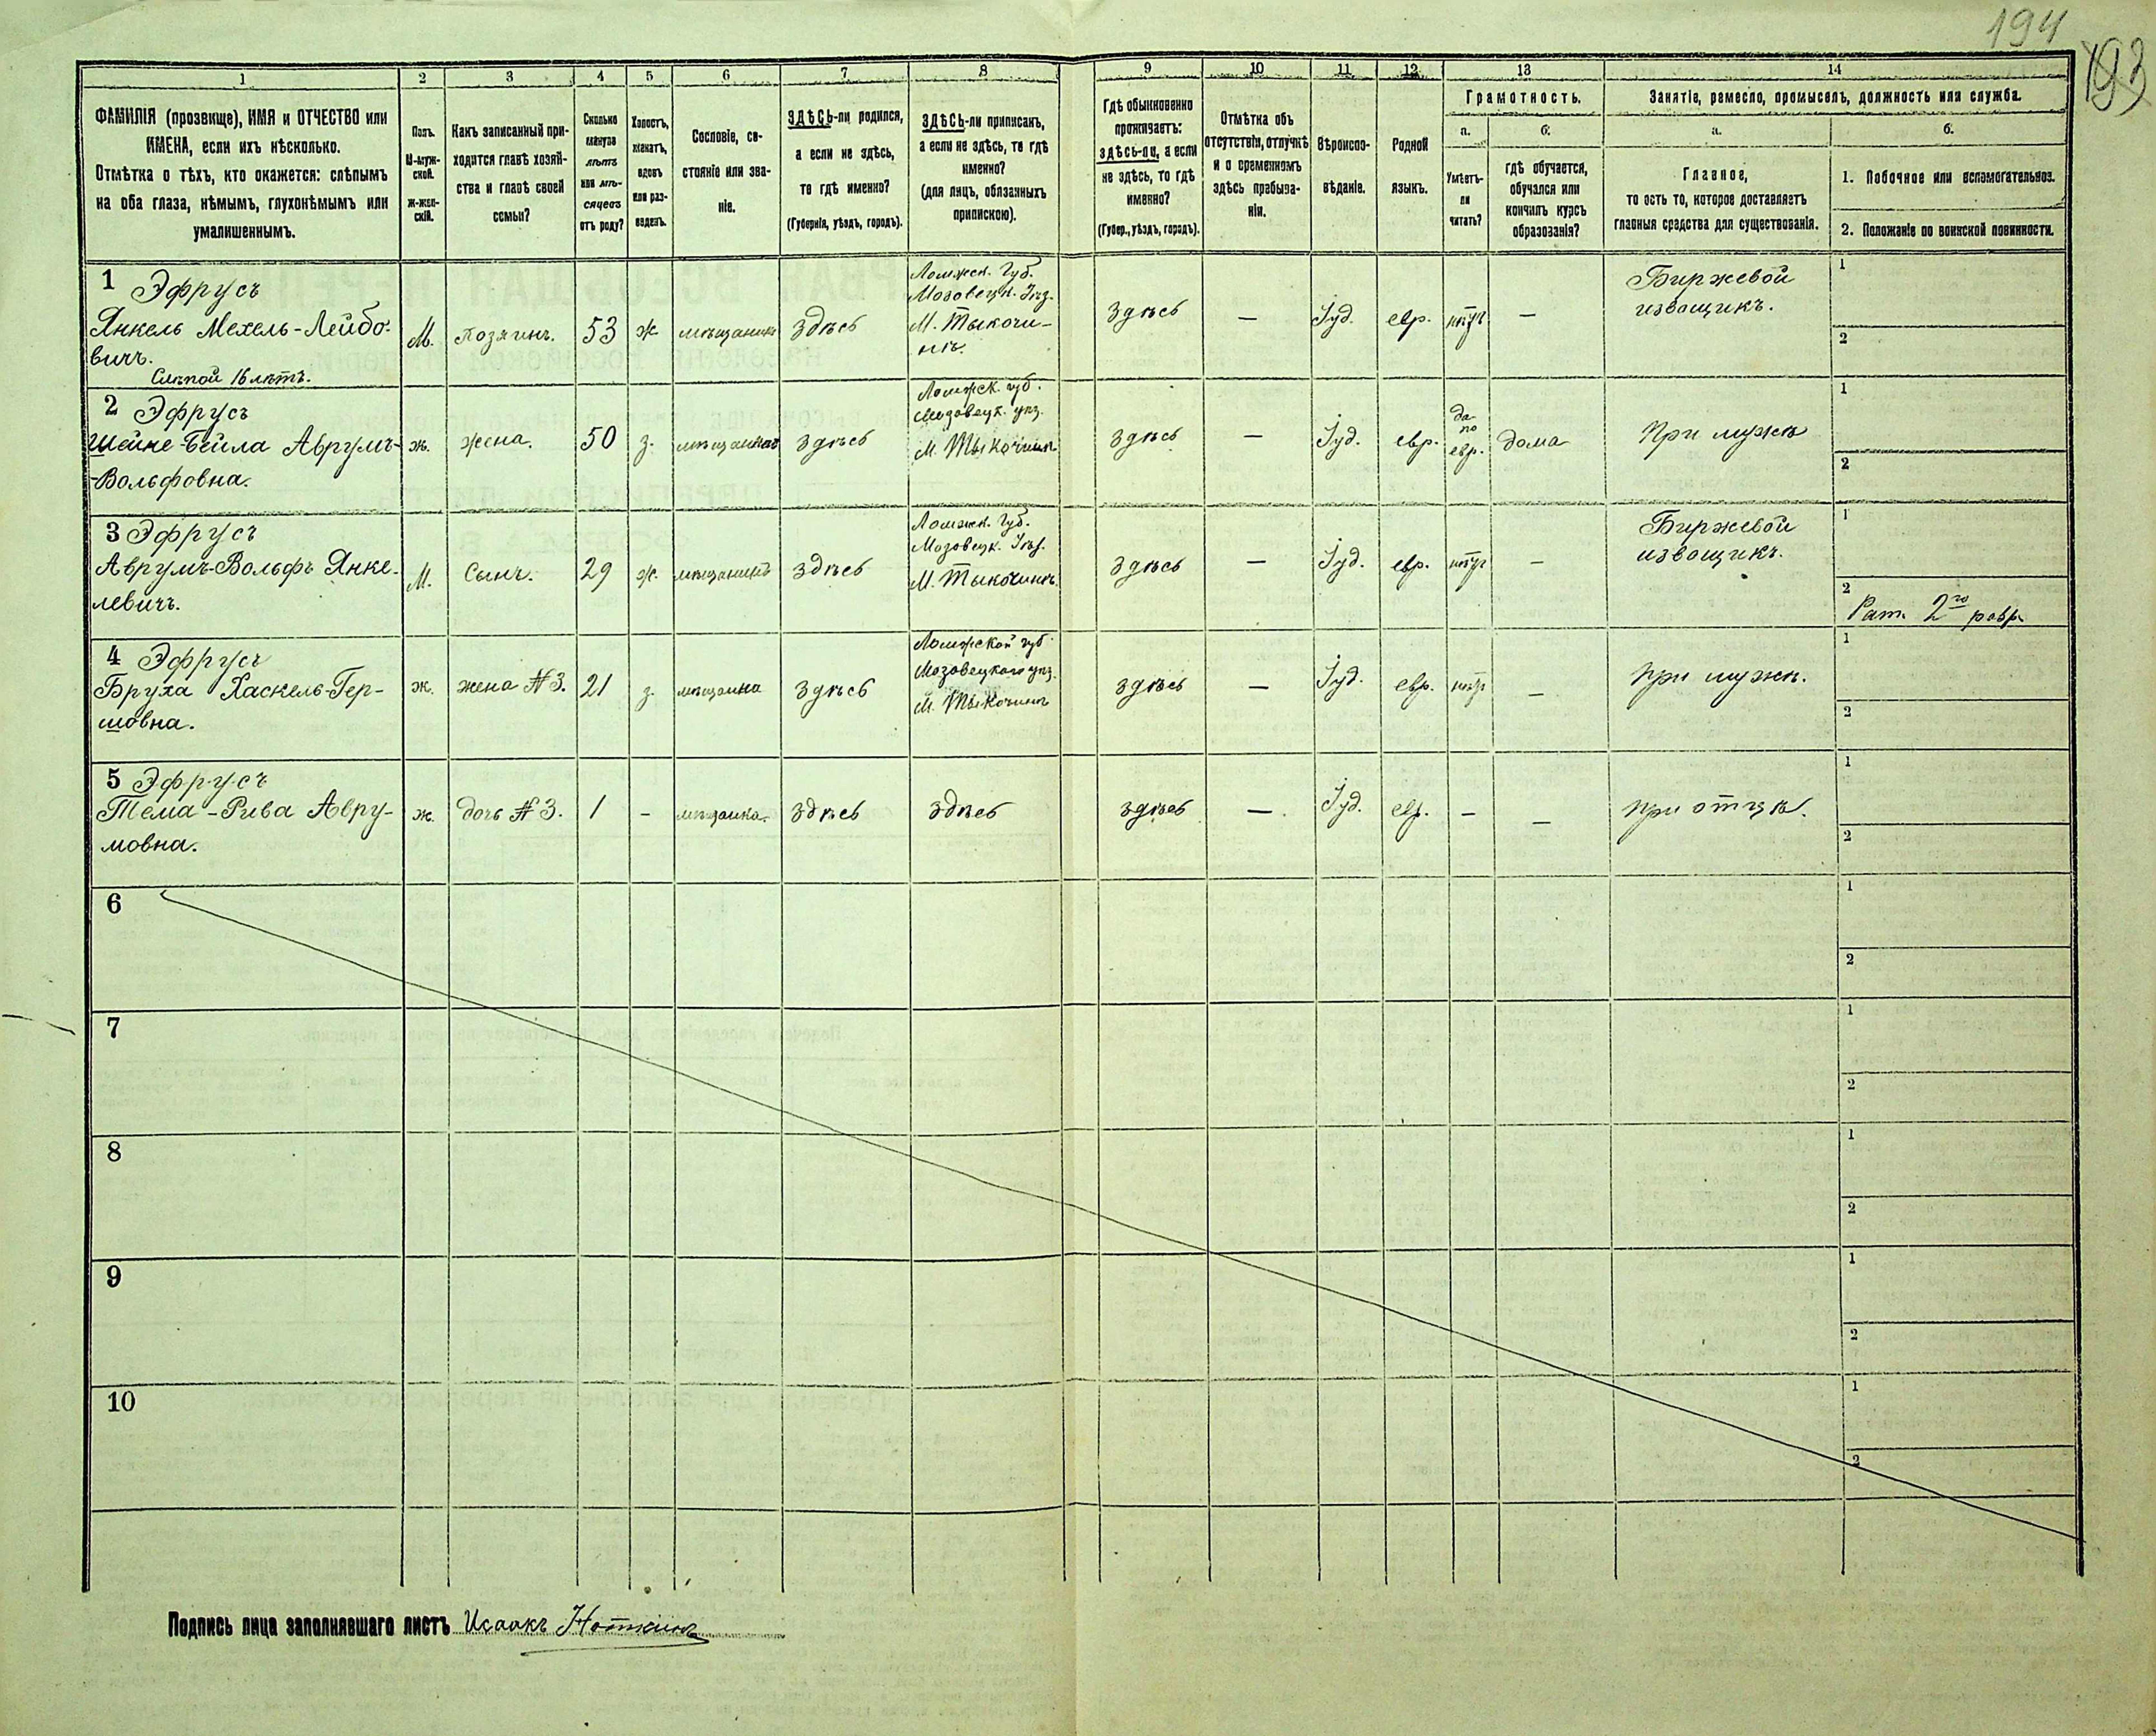 194
193
1 2 3 4 5 6 7 8 9 10 11 12 13 14
ФАМИЛІЯ (прозвище), ИМЯ и ОТЧЕСТВО или
ИМЕНА, если ихъ нѣсколько.
Отмѣтка о тѣхъ, кто окажется: слѣпымъ
на оба глаза, нѣмымъ, глухонѣмымъ или
умалишеннымъ.
Полъ.
М-муж-
ской.
ж-жен-
скій.
Какъ записанный при-
ходится главѣ хозяй-
ства и главѣ своей
семьи?
Сколько
минуло
лѣтъ
или мѣ-
сяцевъ
отъ роду?
Холостъ,
женатъ,
вдовъ
или раз-
веденъ.
Сословіе, со-
стояніе или зва-
ніе.
ЗДѢСЬ-ли родился,
а если не здѣсь,
то гдѣ именно?
(Губернія, уѣздъ, городъ).
ЗДѢСЬ-ли приписанъ,
а если не здѣсь, то гдѣ
именно?
(для лицъ, обязанныхъ
припискою).
Гдѣ обыкновенно
проживаетъ:
здѣсь-ли, а если
не здѣсь, то гдѣ
именно?
(Губер., уѣздъ, городъ).
Отмѣтка объ
отсутствіи, отлучкѣ
и о временномъ
здѣсь пребыва-
ніи.
Вѣроиспо-
вѣданіе.
Родной
языкъ.
Грамотность.
а.
Умѣетъ-
ли
читать?
б.
гдѣ обучается,
обучался или
кончилъ курсъ
образованія?
Занятіе, ремесло, промыселъ, должность или служба.
а.
Главное,
то есть то, которое доставляетъ
главныя средства для существованія.
б.
1. Побочное или вспомогательное.
2. Положеніе по воинской повинности.
1 Эфрусъ
Янкель Мехель-Лейбо-
вичъ.
Слѣпой 16 лѣтъ.
М.
хозяинъ.
53
ж
мѣщанинъ
здѣсь
Ломжск. Губ.
Мазовецк. Уѣз.
М. Тыкочи-
нѣ.
здѣсь
—
Іуд.
евр.
нѣтъ
—
Биржевой
извощикъ.
1
2
2 Эфрусъ
Шейне-Бейла Аврумъ-
-Вольфовна.
ж.
жена.
50
з.
мѣщанка
здѣсь
Ломжск. губ.
Мазовецк. уѣз.
М. Тыкочинѣ
здѣсь
—
Іуд.
евр.
да-
по
евр.
дома
При мужѣ
1
2
3 Эфрусъ
Аврумъ-Вольфъ Янке-
левичъ.
М.
Сынъ.
29
ж.
мѣщанинъ
здѣсь
Ломжск. Губ.
Мазовецк. Уѣз.
М. Тыкочинѣ.
здѣсь
—
Іуд.
евр.
нѣтъ
—
Биржевой
извощикъ.
1
2
Рат. 2го разр.
4 Эфрусъ
Бруха Хаскель-Гер-
шовна.
ж.
жена №3.
21
з.
мѣщанка
здѣсь
Ломжской губ.
Мазовецкаго уѣз.
М. Тыкочинѣ
здѣсь
—
Іуд.
евр.
нѣтъ
—
при мужѣ.
1
2
5 Эфрусъ
Тема-Рива Авру-
мовна.
ж.
дочь №3.
1
-
мѣщанка.
здѣсь
здѣсь
здѣсь
—.
Іуд.
евр.
-
—
при отцѣ.
1
2
6
1
2
7
1
2
8
1
2
9
1
2
10
1
2
Подпись лица заполнявшаго листъ Исаакъ Ноткинъ